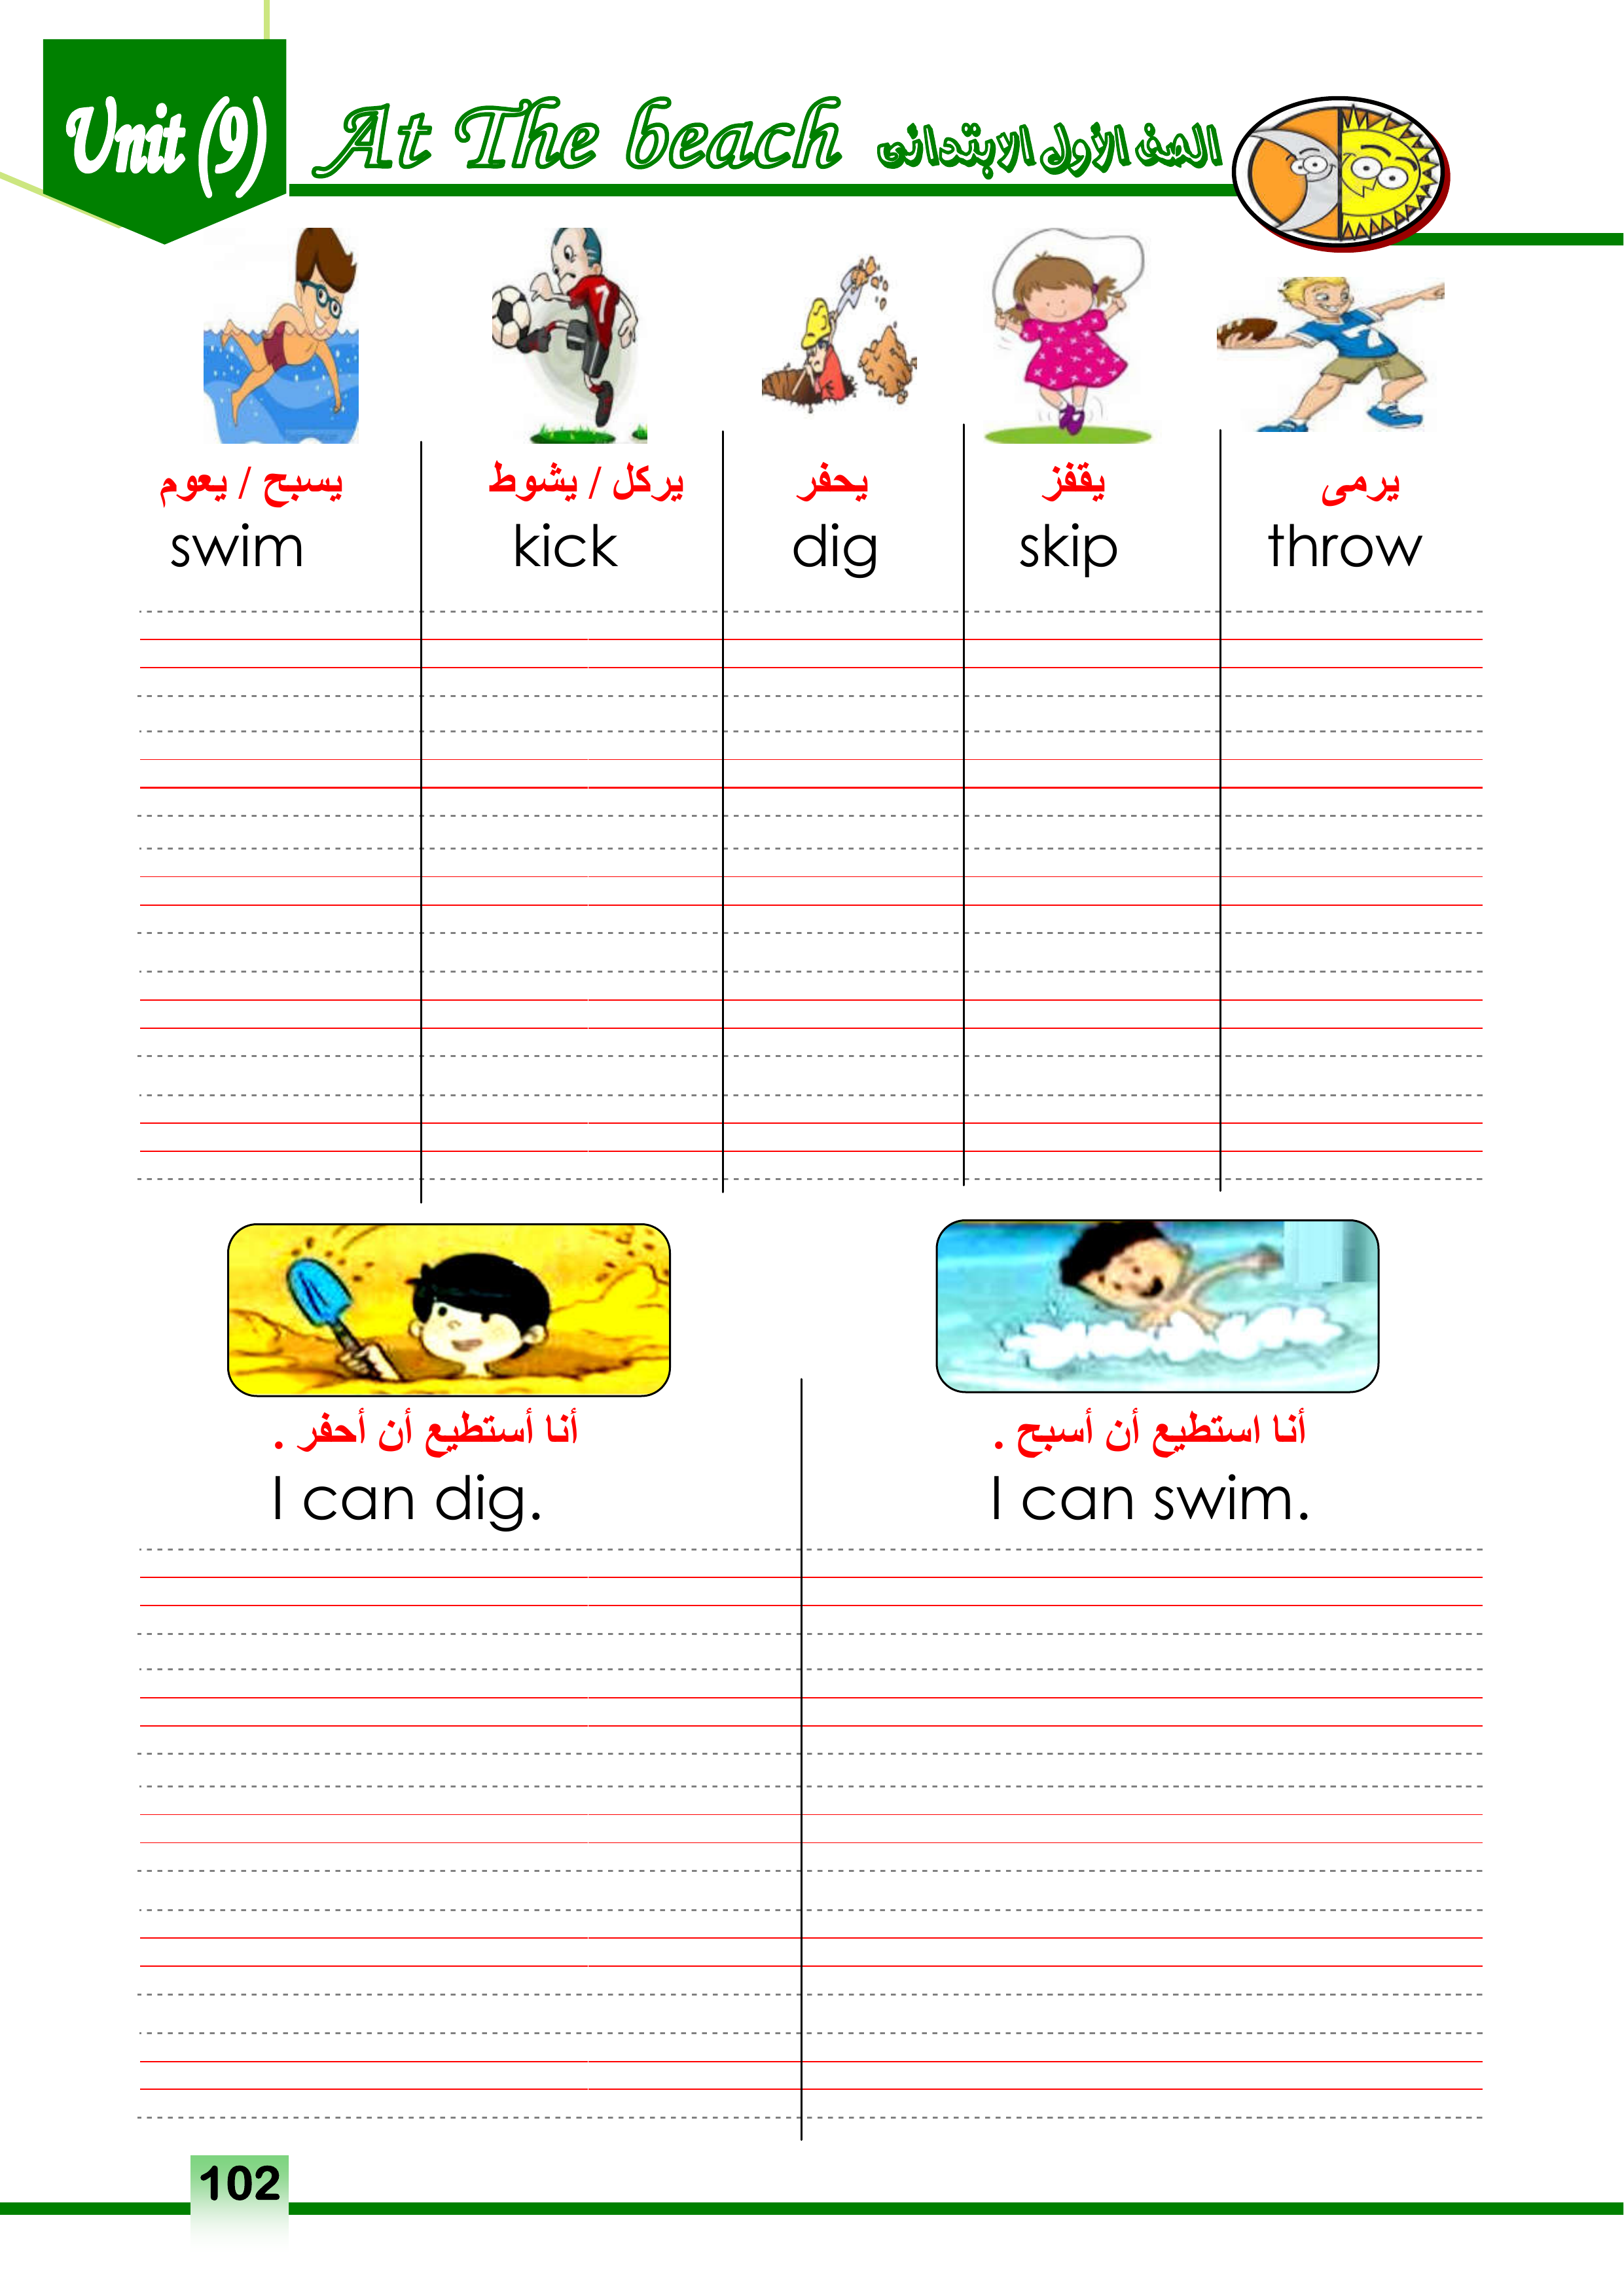 Unit (9)
At The beach الصف الأول الابتدائى
يسبح / يعوم يركل / يشوط يحفر يقفز يرمى
swim kick dig skip throw
أنا أستطيع أن أحفر . أنا استطيع أن أسبح .
I can dig. I can swim.
102